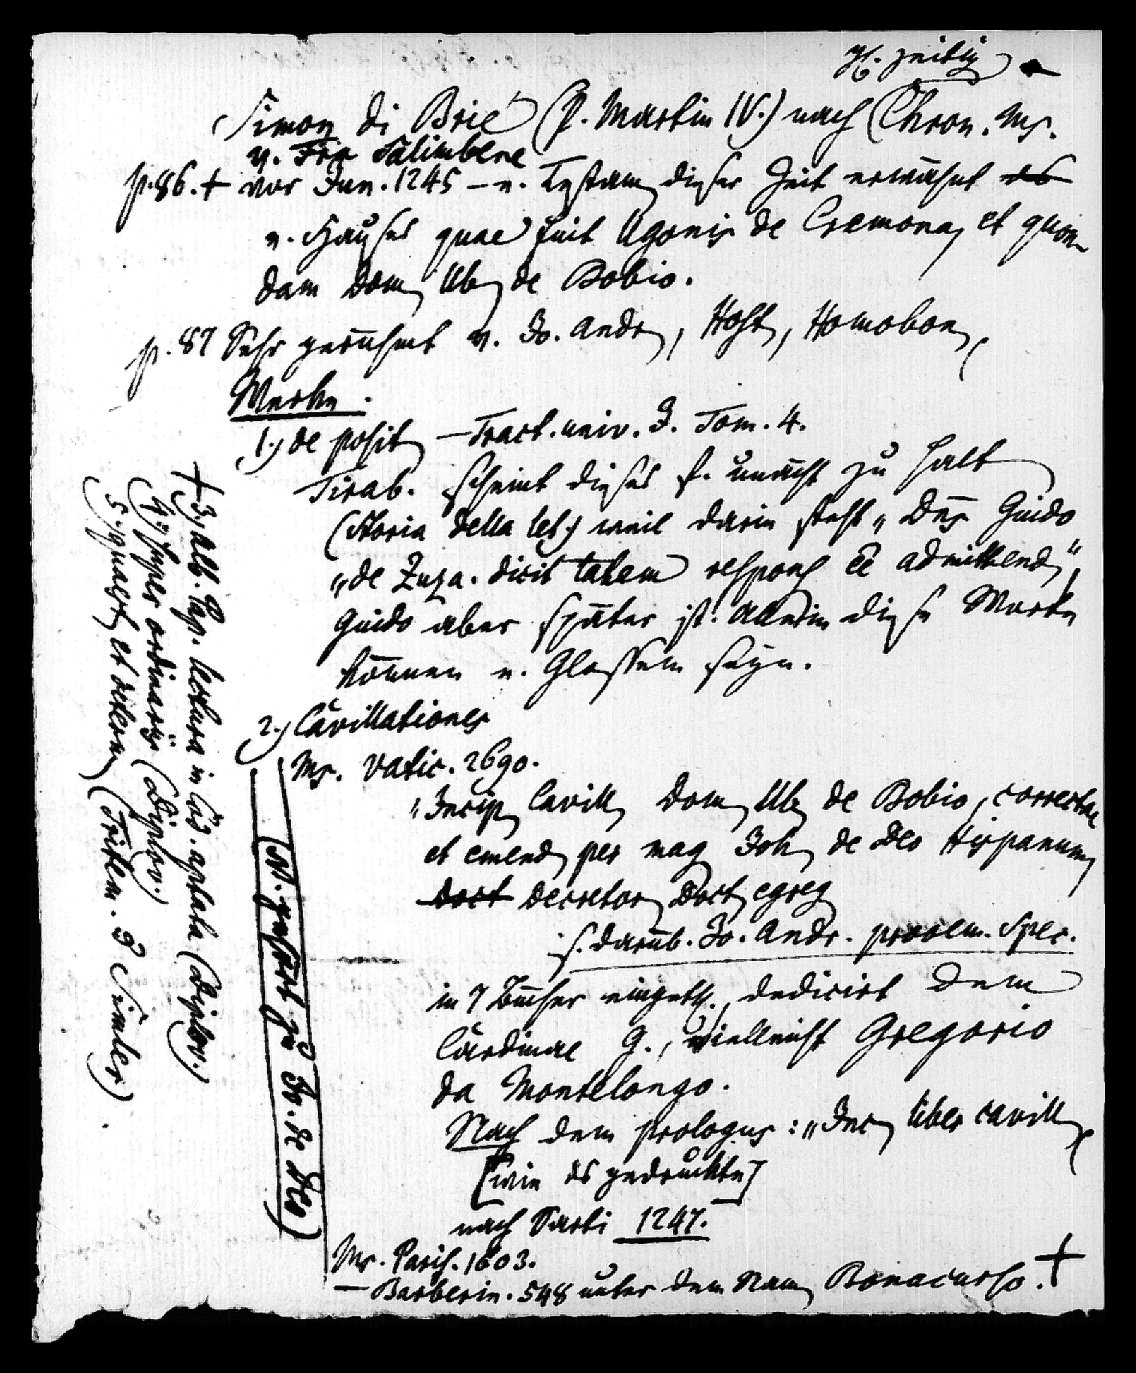 Simon di Brie (P. Martin IV.) nach Chron. Ms.
v. Fra Salimbene
p. 86. + vor Jun. 1245 – e. Testam dieser Zeit erwähnt
e. Hauses quae fuit Ugonis de Cremona, et quon-
dam Dom Ub de Bobio.
p. 87 Sehr gerühmt v. Jo. Andr, Host, Homobon,
Werke.
1.) de posit – Tract. univ. J. Tom. 4.
Tirab. scheint dieses f. unächt zu halt
(Storia della let.) weil darin steht „Dns Guido
„de Zuza. dicit talem respons ee admittend“,
Guido aber später ist. Allein diese Worte
können e. Glossem seyn.
2.) Cavillationes
Ms. Vatic. 2690.
„Incip Cavill Dom Ub de Bobio, correctae
et emend per mag Joh de Deo Hispanum
doct decretor Doct egreg
s. darüb. Jo. Andr. prooem. Spec.
in 7 Bücher eingeth., dedicirt dem
Cardinal G., vielleicht Gregorio
da Montelongo.
Nach dem prologus: „Inc liber cavill
[wie ds gedruckte]
nach Sarti 1247.
Ms. Paris. 1603.
– Barberin. 548 unter dem Nam Bonacurso. +
(N. gehört zu Jo. de Deo)
+ 3, Alb. Pap. lectura in Cod. aptata (Diplov.)
(4, super ordinariis (Diplov.)
5, quaest et determ (Tritem. Simler)